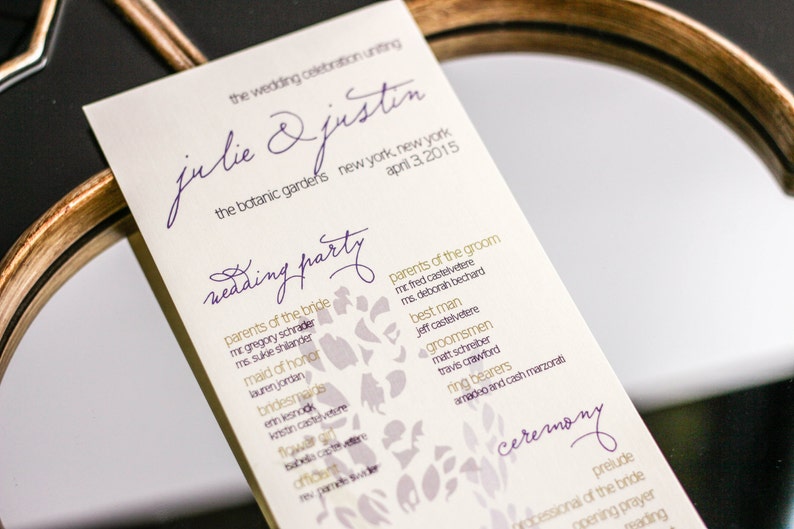 the wedding celebration uniting
julie & justin
the botanic gardens new york, new york
april 3, 2015
wedding party
parents of the bride
mr. gregory schrader
ms. sukie shilander
maid of honor
lauren jordan
bridesmaids
erin lesnock
kristin castelvetere
flower girl
isabella castelvetere
officient
rev. pamele swider
parents of the groom
mr. fred castelvetere
ms. deborah bechard
best man
jeff castelvetere
groomsmen
matt schreiber
travis crawford
ring bearers
amadeo and cash marzorati
ceremony
prelude
processional of the bride
opening prayer
reading